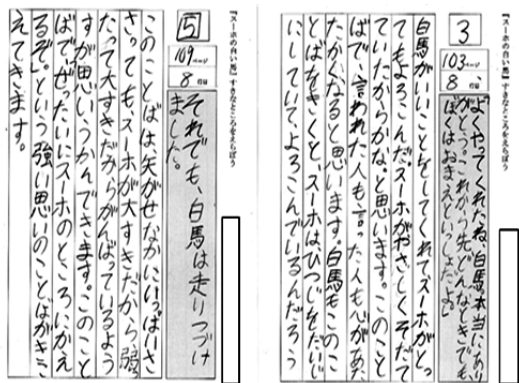 『スーホの白い馬』すきなところをえらぼう
3
103ページ
8行目
よくやってくれたね、白馬。本当にあり
がとう。これから先どんなときでも、
ぼくはおまえといっしょだよ。
白馬がいいことをしてくれて、スーホがとっ
てもよろこんだ。スーホがやさしくそだて
ていたからかな。と思います。このこと
ばで、言われた人も言った人も心があた
たかくなると思います。白馬もこのこ
とばをきくと、スーホはひつじをたいじ
にしていて、よろこんでいるんだろう
『スーホの白い馬』すきなところをえらぼう
5
109ページ
8行目
それでも、白馬は走りつづけ
ました。
このことばは、矢がせなかにいっぱいさ
さっても、スーホが大すきだから弱
たって大すきだみらがんばっているよう
すが思いうかんできます。このこと
ばで、ぜったいにスーホのところにかえ
るぞ。という強い思いのことばがきこ
えてきます。